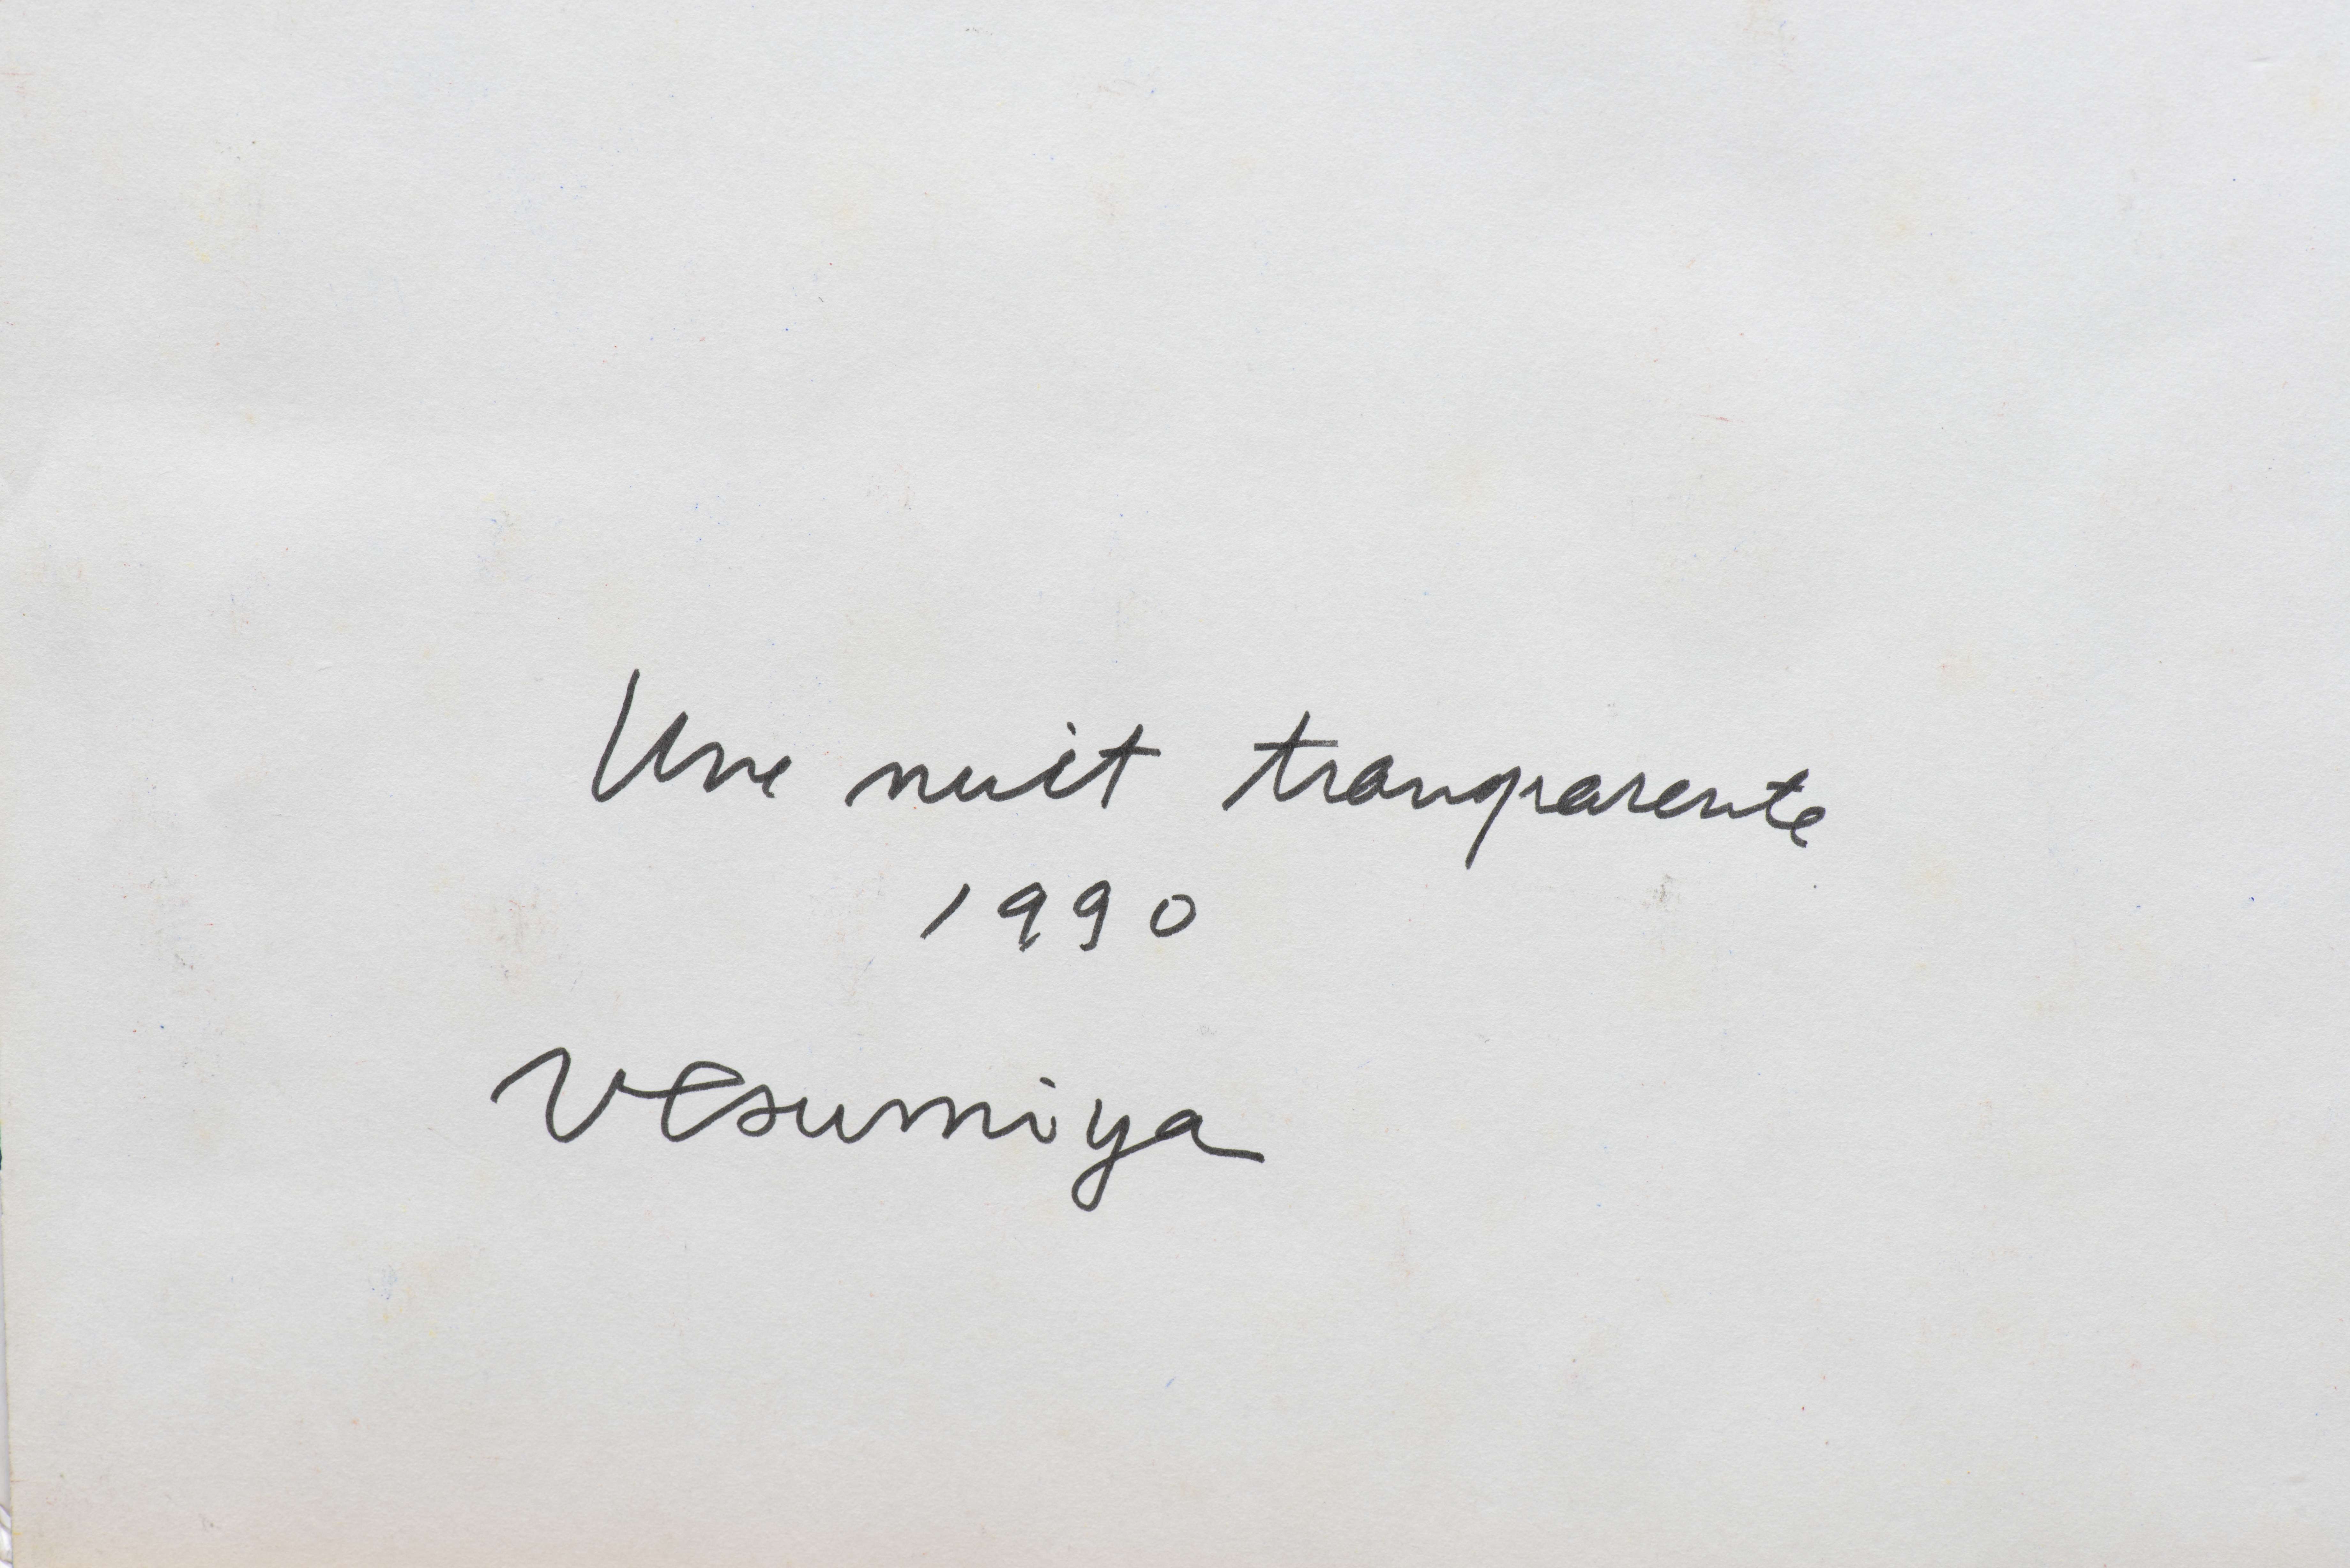 Une nuit transparente
1990
Utsumiya